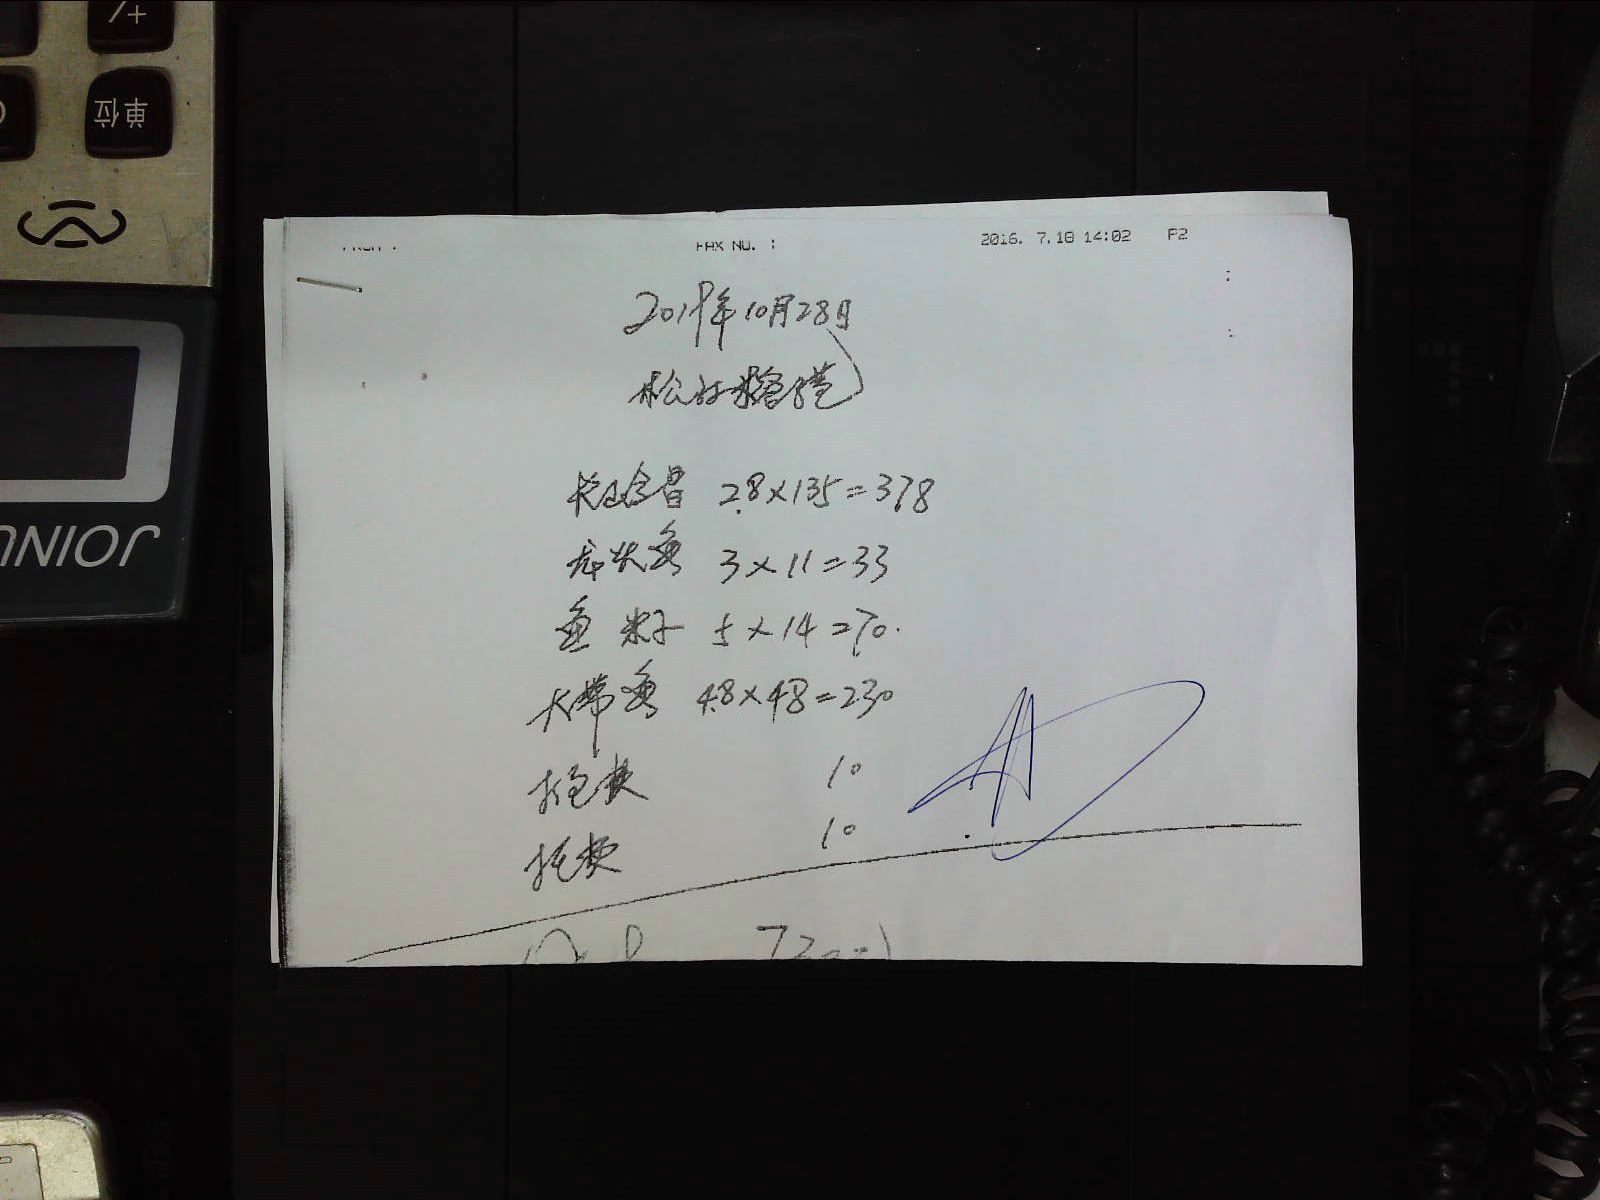 +/
單位
JOINU
FROM :
FAX NO. :
2016. 7.18 14:02 P2
2019年10月28日
松江
长江鲳 2.8×135=378
龙头鱼 3×11=33
鱼籽 5×14=70.
大带鱼 4.8×48=230
打包费 10
托费 10